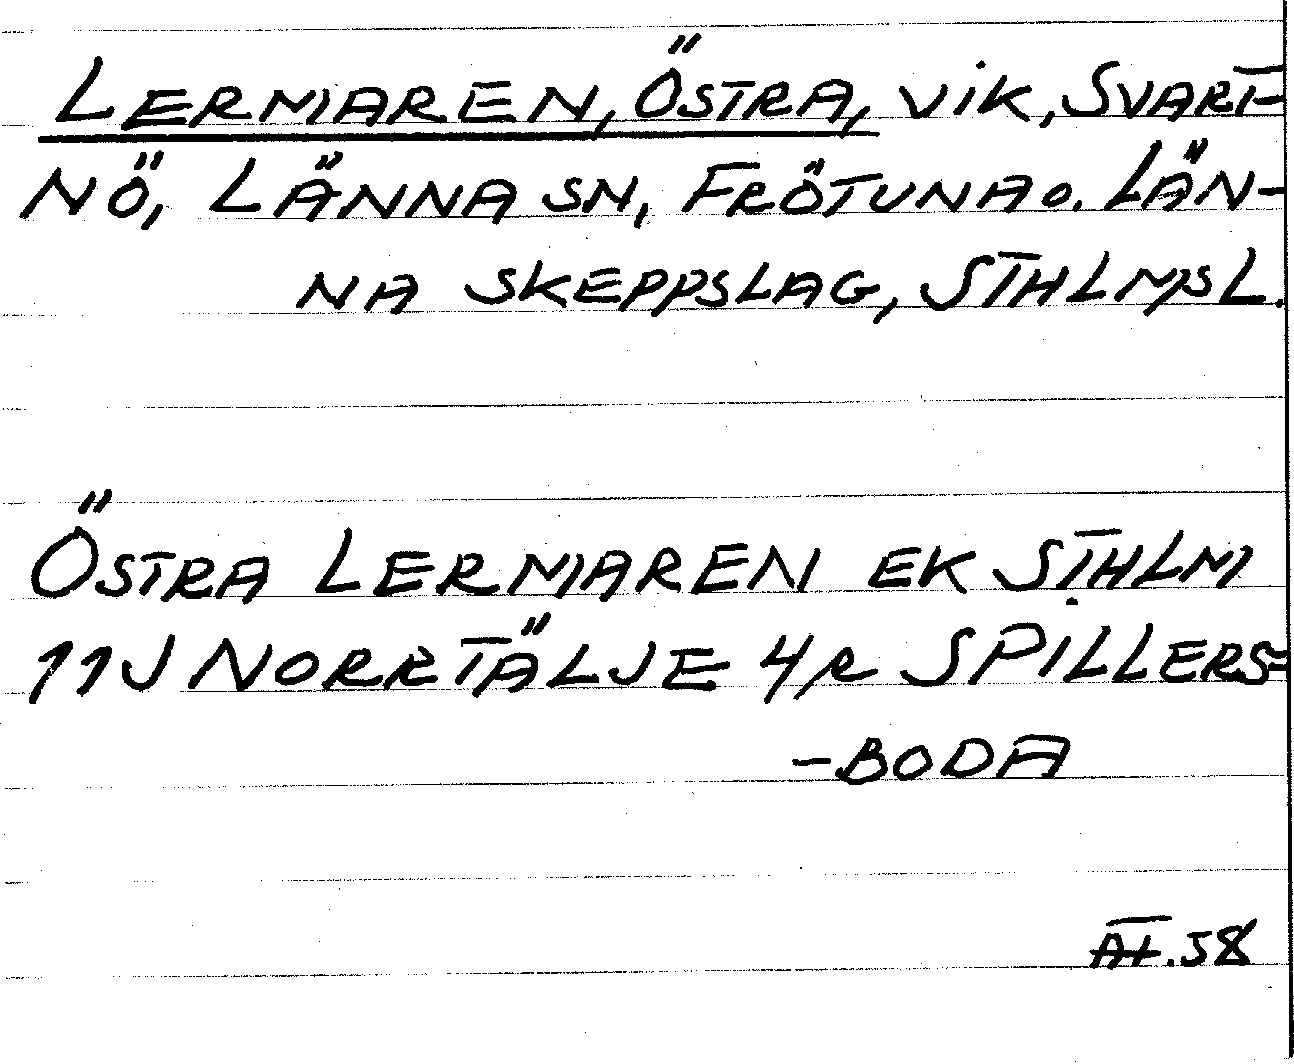 LERMAREN, ÖSTRA, VIK, SVART-
NÖ, LÄNNA SN, FRÖTUNA O. LÄN-
NA SKEPPSLAG, STHLMS L.
ÖSTRA LERMAREN EK STHLM
11J NORRTÄLJE 4/R SPILLERS-
-BODA
58